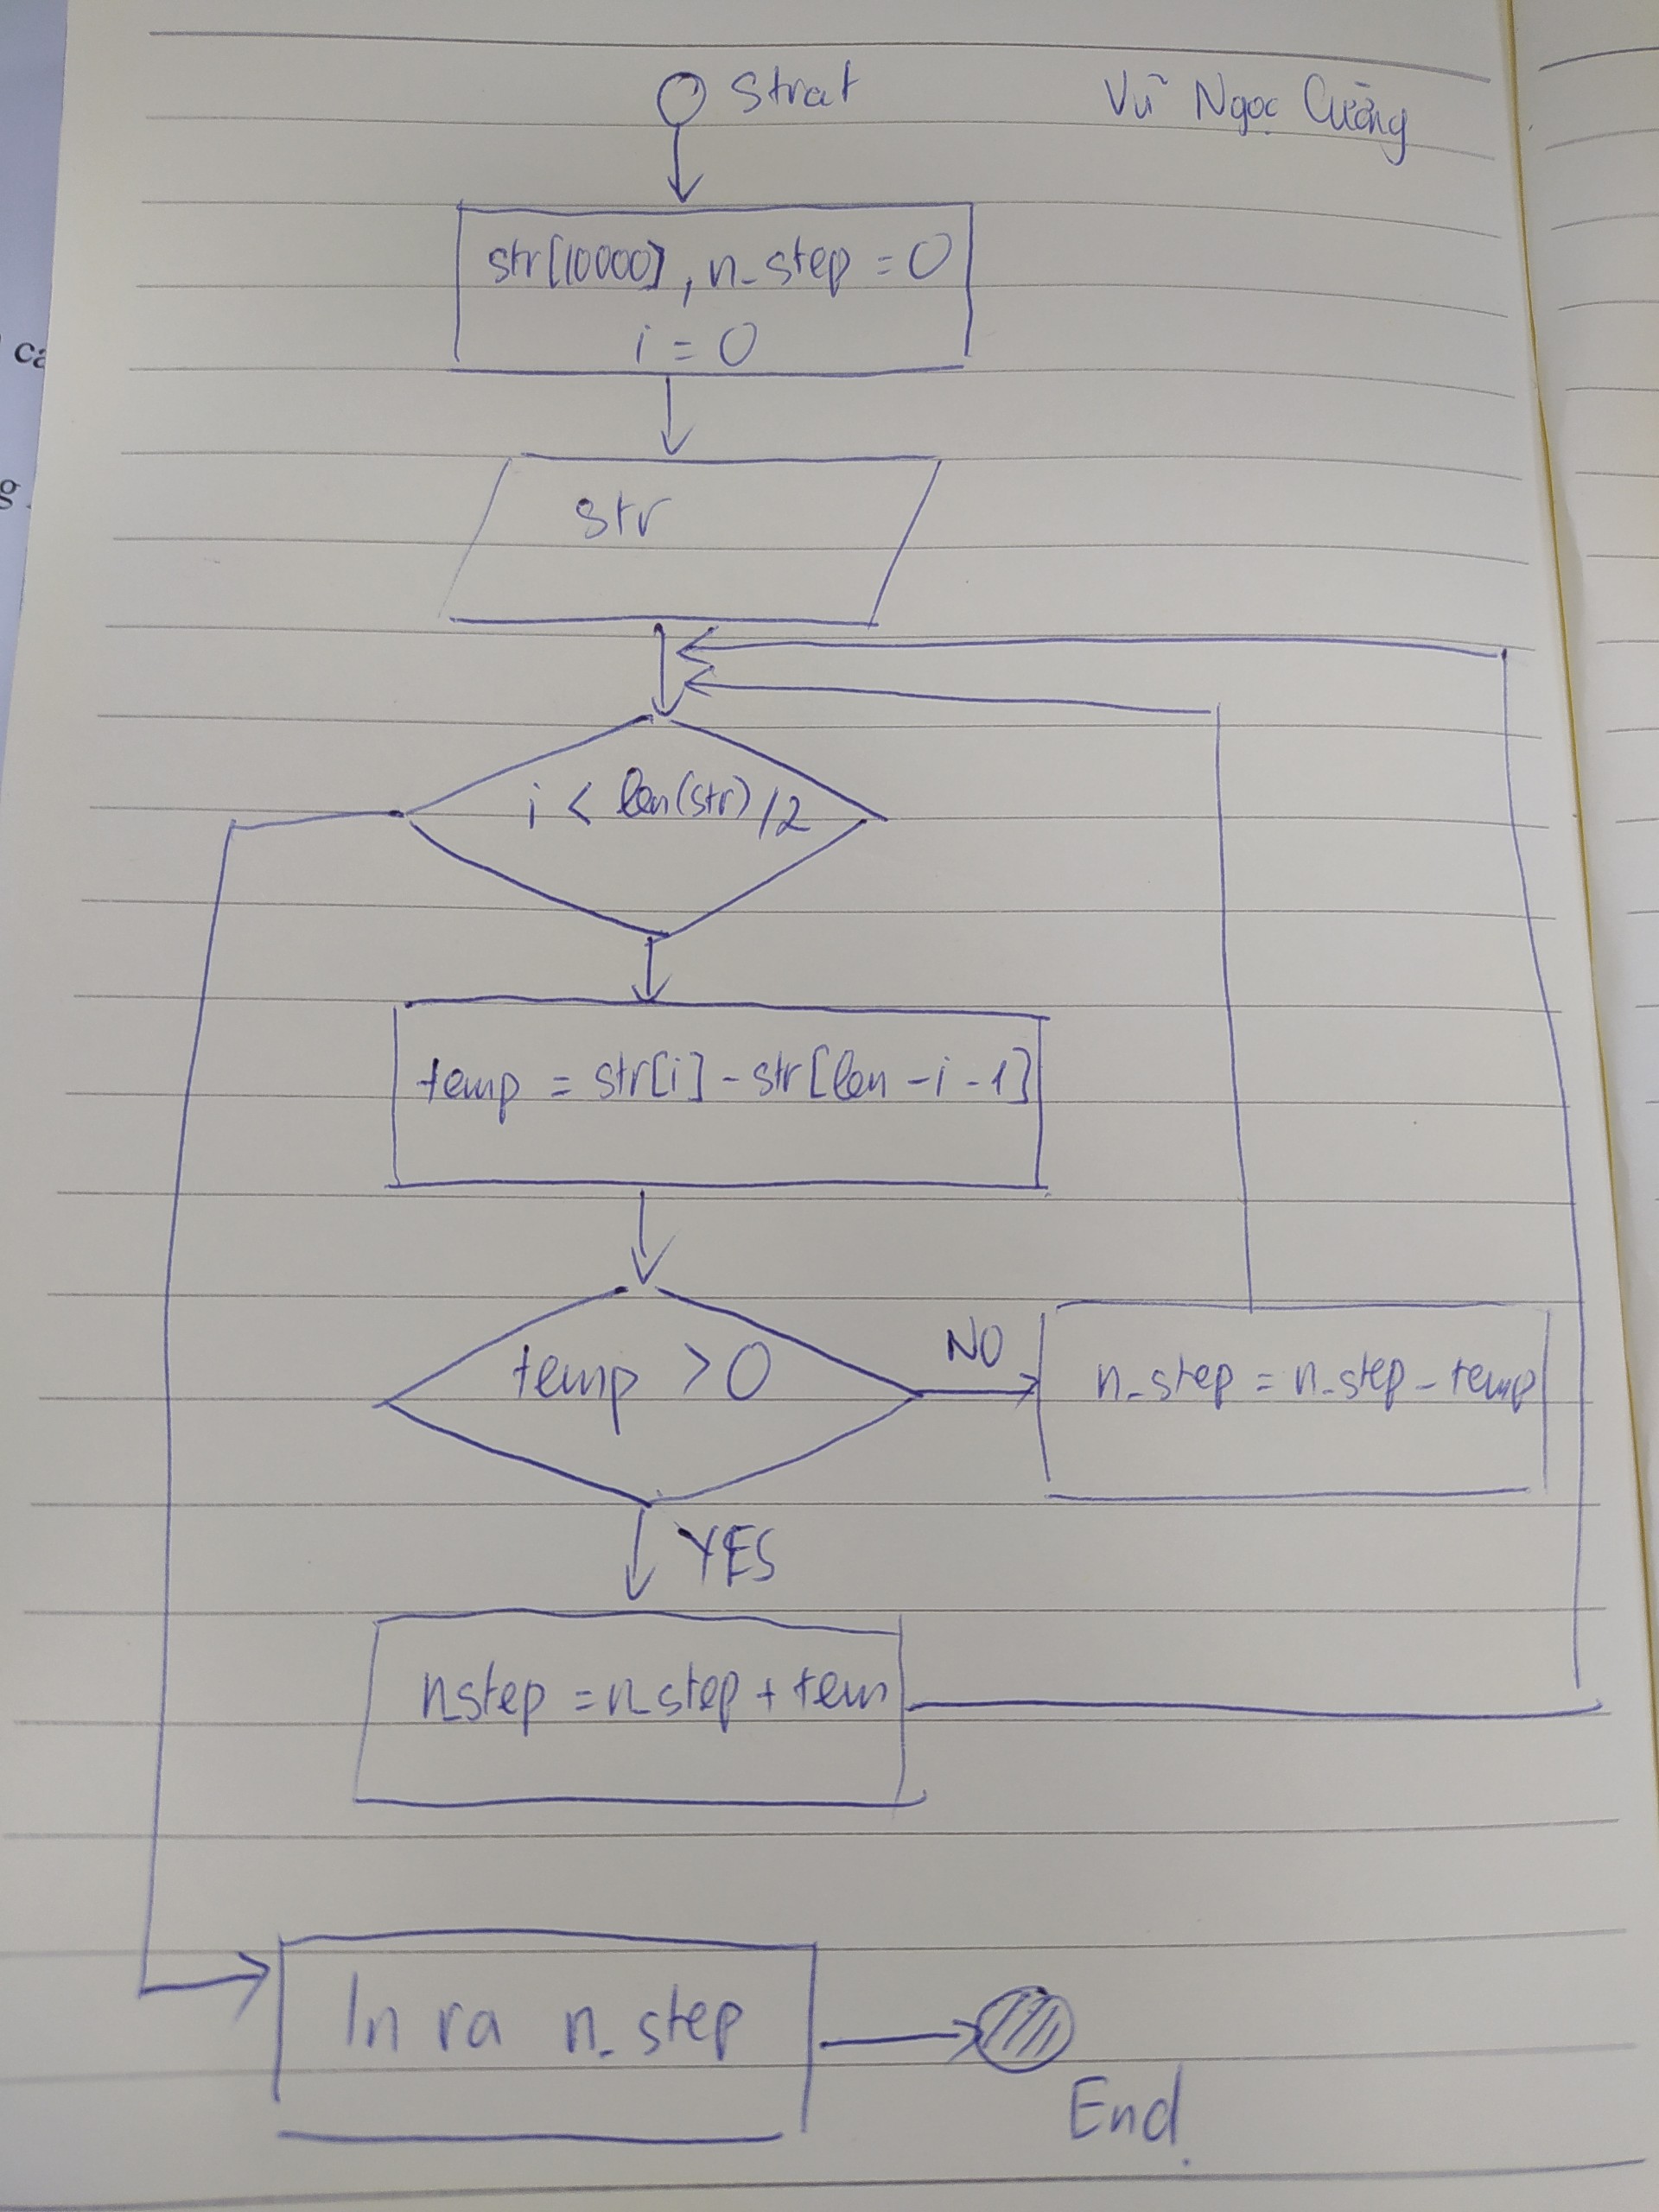 Strat
Vũ Ngọc Cường
str[10000], n_step = 0
i = 0
str
i < len(str)/2
temp = str[i] - str[len - i - 1]
temp > 0
NO
n_step = n_step - temp
YES
n_step = n_step + tem
In ra n_step
End